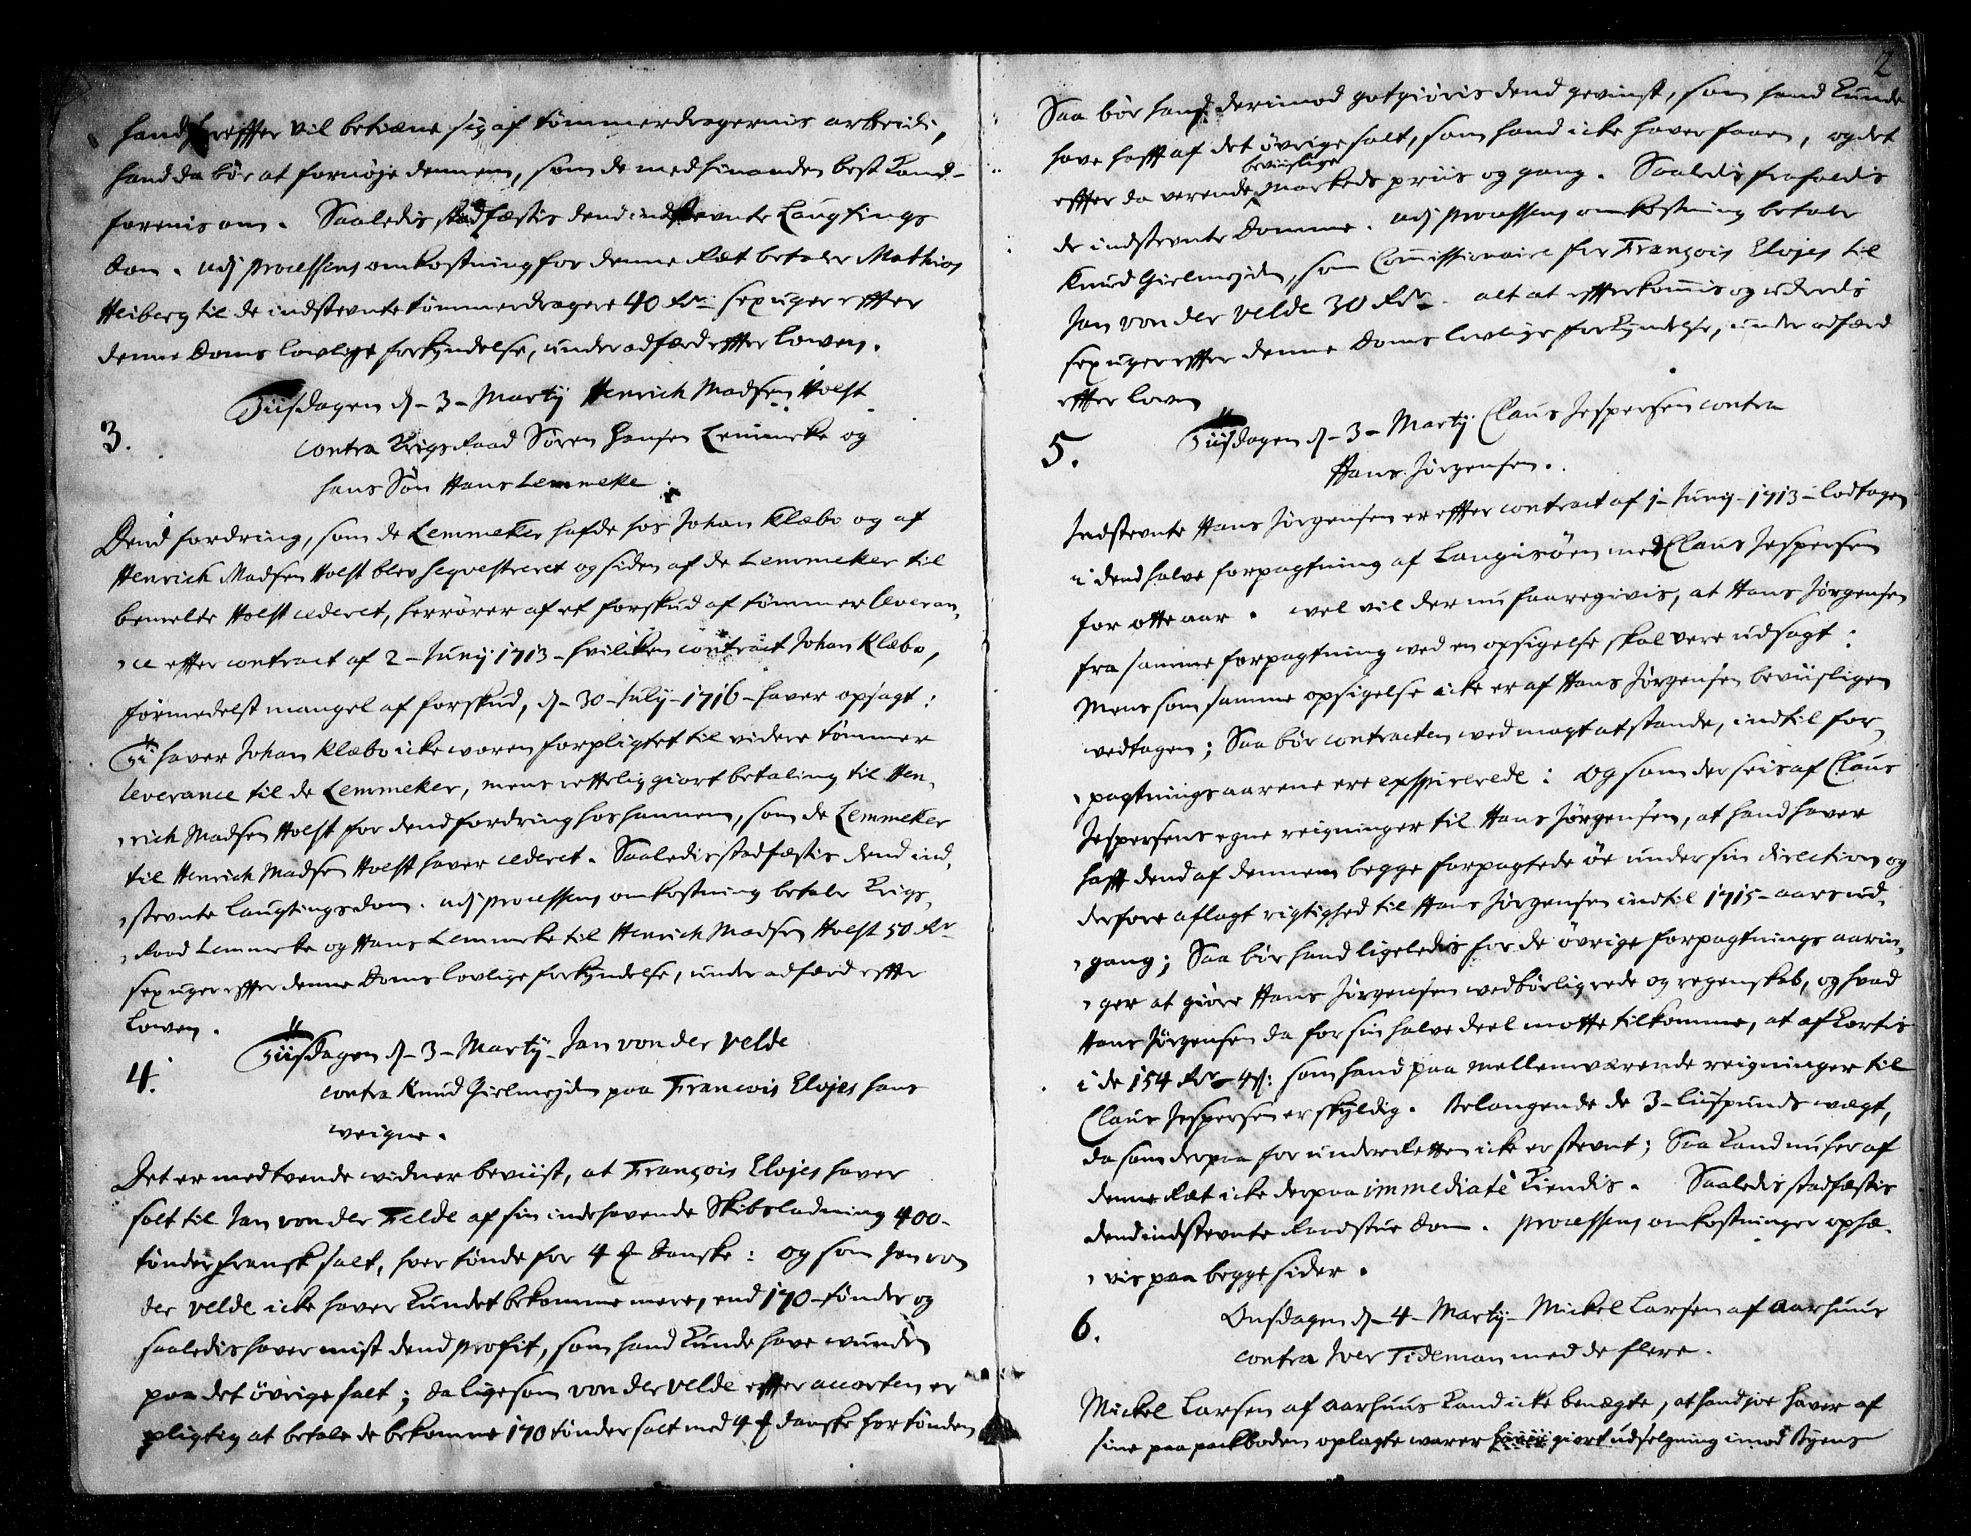 hand herefter vil betiene sig af tømmerdragernis arbeide,
hand da bør at fornøje dennem, som de med hinanden best kand
forenis om. Saaledis stadfæstis dend indstevnte Laugtings
dom. udj Processens omkostning for denne Ræt betaler Mathias
Heiberg til de indstevnte tømmerdragere 40 Rdr sex uger effter
denne Doms lovlige forkyndelse, under adfærd effter Lowen.
3. Tiisdagen d. 3 Martij Henrich Madsen Holst
contra Krigs Raad Søren Hansen Lemmeke og
hans Søn Hans Lemmeke.
Dend fordring, som de Lemmeker hafde hos Johan Klæbo og af
Henrich Madsen Holst blev seqvestreret og siden af de Lemmeker til
bemelte Holst cederet, herrører af et forskud af tømmer leveran-
ce effter contract af 2 Junij 1713 hvilken contract Johan Klæbo,
formedelst mangel af forskud, d. 30 July 1716 haver opsagt:
Ti haver Johan Klæbo icke waren forpligtet til videre tømmer
leverance til de Lemmeker, mens rettelig giort betaling til Hen-
rich Madsen Holst for dend fordring hos hannem, som de Lemmeker
til Henrich Madsen Holst haver cederet. Saaledis stadfæstis dend ind-
stevnte laugtings dom. udj Processens omkostning betaler Krigs-
Raad Lemmeke og Hans Lemmeke til Henrich Madsen Holst 50 Rdr
sex uger effter denne Doms lovlige forkyndelse, under adfærd effter
Lowen.
4. Tiisdagen d. 3 Martij Jan von der Velde
contra Knud Gielmøjden paa Francois Elojes hans
weigne.
Det er med tvende widner beviist, at François Elojes haver
solt til Jan von der Felde af sin indehavende Skibsladning 400
tønder fransk salt, hver tønde for 4 danske: og som Jan von
der Velde icke haver kundet bekomme mere, end 170 tønder og
saaledis haver mist dend profit, som hand kunde have wundet
paa det øvrige salt; da ligesom von der Velde effter accorten er
pligtig at betale de bekomne 170 tønder salt med 4 danske for tønden
2
Saa bør hand derimod gotgiøris dend gevinst, som hand kunde
have hafft af det øvrige salt, som hand icke haver faaen, og det
effter da verende beviislige Markeds priis og gang. Saaledis frafaldis
de indstevnte Domme. udj Processens omkostning betaler
Knud Gielmøjden, som Commissionaire for François Elojes til
Jan von der Velde 30 Rdr. alt at efterkommis og udredis
sex uger effter denne Doms lovlige forkyndelse, under adfærd
effter Lowen
5. Tiisdagen d. 3 Martij Claus Jespersen contra
Hans Jørgensen.
Indstevnte Hans Jørgensen er effter contract af 1 Junij 1713 indtagen
i dend halve forpagtning af Langisøen med Claus Jespersen
for otte aar. wel vil der nu foregivis, at Hans Jørgensen
fra samme forpagtning ved en opsigelse skal vere udsagt:
Mens som samme opsigelse icke er af Hans Jørgensen beviisligen
vedtagen; Saa bør contracten ved magt at stande, indtil for-
pagtnings aarene ere exspirerede: Og som der seis af Claus
Jespersens egne reigninger til Hans Jørgensen, at hand haver
hafft dend af dennem begge forpagtede øe under sin direction og
derfore aflagt rigtighed til Hans Jørgensen indtil 1715 aars ud-
gang; Saa bør hand ligeledis for de øvrige forpagtnings aarin-
ger at giøre Hans Jørgensen vedbørlig rede og regenskab, og hvad
Hans Jørgensen da for sin halve deel motte tilkomme, at afkortis
i de 154 Rdr 4 s: som hand paa mellemværende reigninger til
Claus Jespersen er skyldig. Belangende de 3 Liispunds wægt,
da som derpaa for under Retten icke er stevnt; Saa kand nu her af
denne Ræt icke derpaa immediatè kiendis. Saaledis stadfæstis
dend indstevnte Raadstue dom. Processens omkostninger ophæ-
vis paa begge sider.
6. Onsdagen d. 4 Martij Mickel Larsen af Aarhuus
contra Iver Tideman med de flere.
Mickel Larsen af Aarhuus kand icke benægte, at hand jo haver af
sine paa pakboden oplagte warer giort udsælgning imod Byens